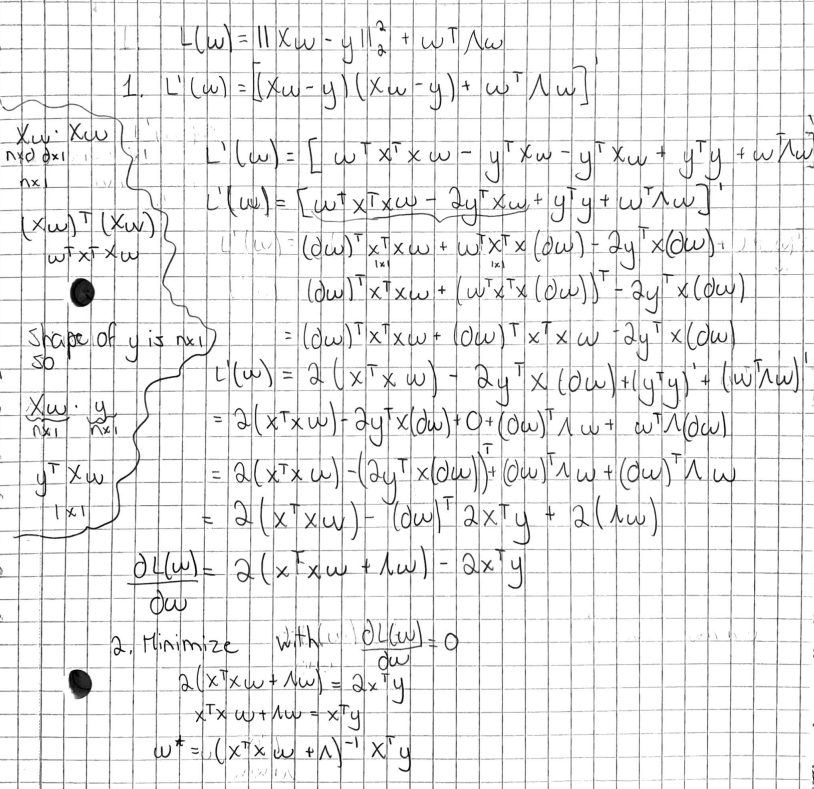 L(w) = || Xw - y ||₂² + wᵀ Λw
1. L'(w) = [(Xw-y) (Xw-y) + wᵀ Λw]'
Xw · Xw
nxd dx1
nx1
(Xw)ᵀ (Xw)
wᵀxᵀXw
Shape of y is nx1
so
Xw · y
nx1 nx1
yᵀXw
1x1
L'(w) = [ wᵀxᵀxw - yᵀXw - yᵀXw + yᵀy + wᵀΛw]'
L'(w) = [wᵀxᵀxw - 2yᵀXw + yᵀy + wᵀΛw]'
L'(w) = (dw)ᵀxᵀxw + wᵀxᵀx(dw) - 2yᵀx(dw) +
1x1 1x1
(dw)ᵀxᵀxw + (wᵀxᵀx(dw))ᵀ - 2yᵀx(dw)
= (dw)ᵀxᵀxw + (dw)ᵀxᵀxw - 2yᵀx(dw)
L'(w) = 2(xᵀxw) - 2yᵀx(dw) + (yᵀy)' + (wᵀΛw)'
= 2(xᵀxw) - 2yᵀx(dw) + 0 + (dw)ᵀΛw + wᵀΛ(dw)
= 2(xᵀxw) - (2yᵀx(dw))ᵀ + (dw)ᵀΛw + (dw)ᵀΛw
= 2(xᵀxw) - (dw)ᵀ2xᵀy + 2(Λw)
∂L(w)/∂w = 2(xᵀxw + Λw) - 2xᵀy
2. Minimize with ∂L(w)/∂w = 0
2(xᵀxw + Λw) = 2xᵀy
xᵀxw + Λw = xᵀy
w* = (xᵀxw + Λ)⁻¹ xᵀy